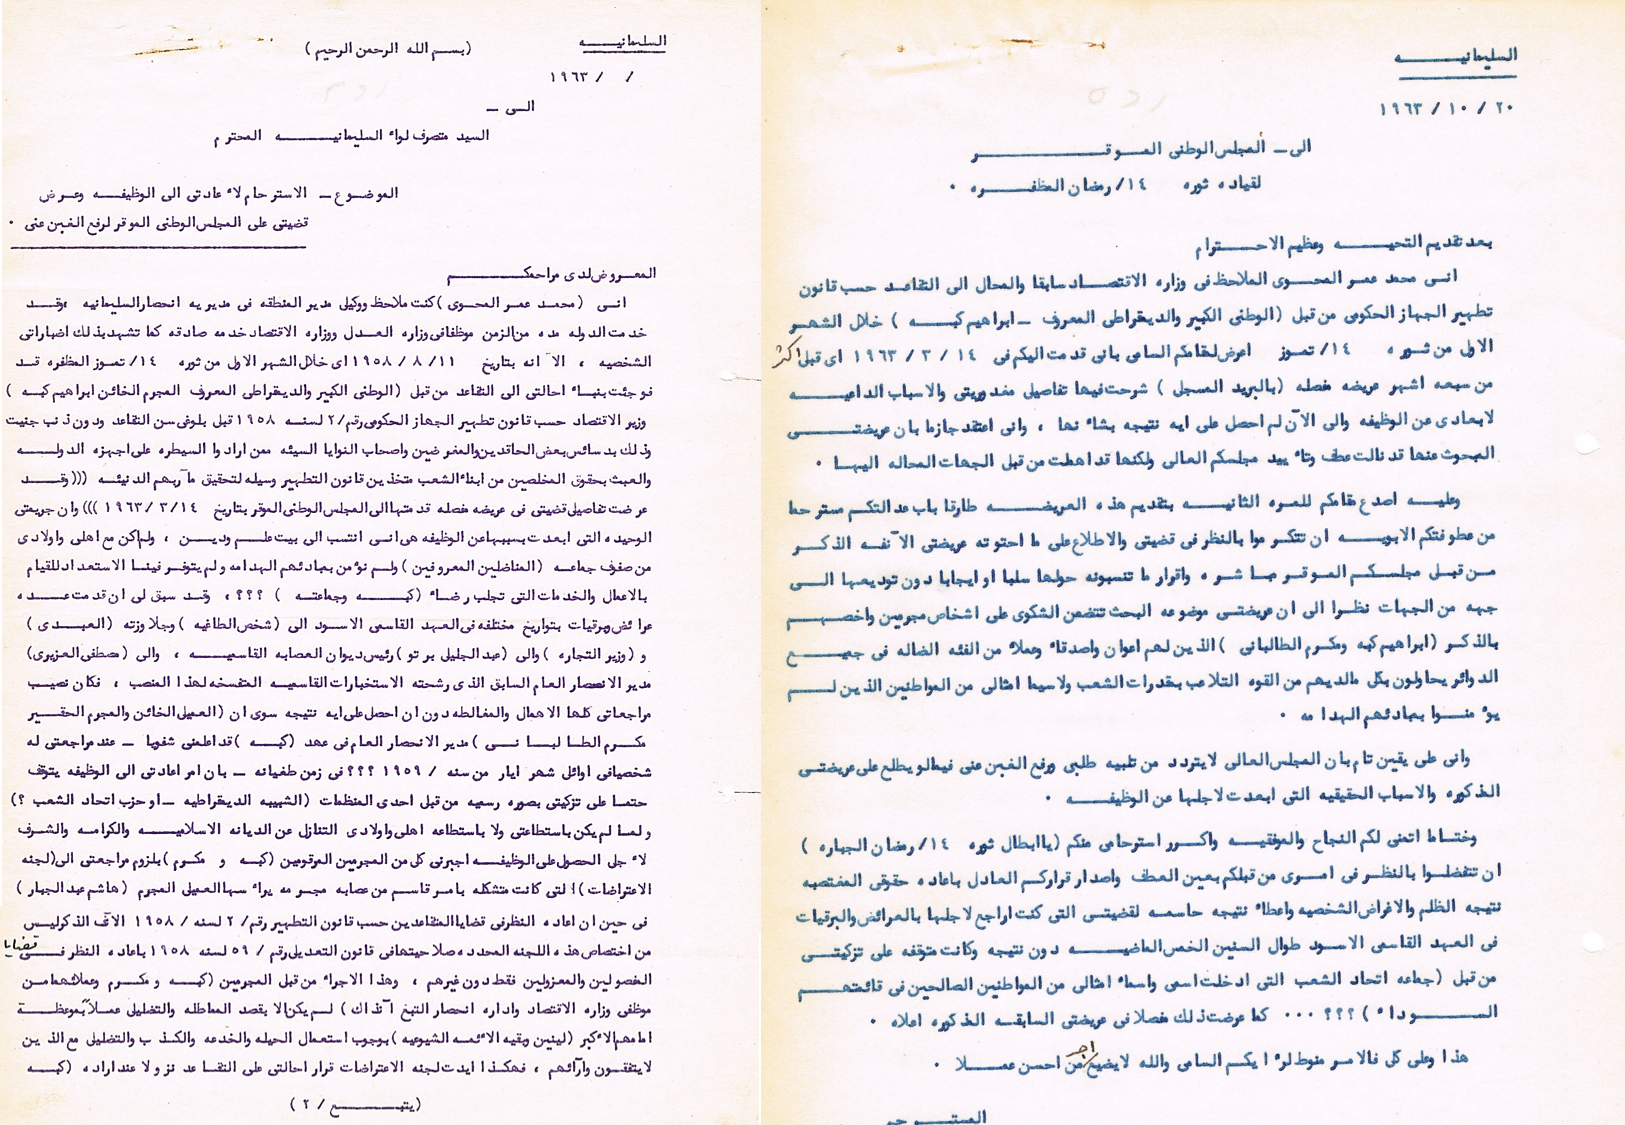 السليمانيه
(بسم الله الرحمن الرحيم)
/ / ١٩٦٣
الى -
السيد متصرف لواء السليمانيه المحترم
الموضوع - الاسترحام لاعادتى الى الوظيفه وعرض
قضيتى على المجلس الوطنى الموقر لرفع الغبن عنى .
المعروض لدى مراحمكم
انى (محمد عمر المحوى) كنت ملاحظ ووكيل مدير المنطقه فى مديريه انحصار السليمانيه وقد
خدمت الدوله مده من الزمن موظفا فى وزاره العدل ووزاره الاقتصاد خدمه صادقه كما تشهد بذلك اضباراتى
الشخصيه ، الا انه بتاريخ ١١/ ٨ / ١٩٥٨ اى خلال الشهر الاول من ثوره ١٤/ تموز المظفره قد
فوجئت بنبأ احالتى الى التقاعد من قبل (الوطنى الكبير والديمقراطى المعروف المجرم الخائن ابراهيم كبه )
وزير الاقتصاد حسب قانون تطهير الجهاز الحكومى رقم/ ٢ لسنه ١٩٥٨ قبل بلوغى سن التقاعد ودون ذنب جنيت
وذلك بدسائس بعض الحاقدين والمغرضين واصحاب النوايا السيئه ممن ارادوا السيطره على اجهزه الدوله
والعبث بحقوق المخلصين من ابناء الشعب متخذين قانون التطهير وسيله لتحقيق مآربهم الدنيئه ((( وقد
عرضت تفاصيل قضيتى فى عريضه مفصله قدمتها الى المجلس الوطنى الموقر بتاريخ ١٤/ ٣/ ١٩٦٣ ))) وان جريمتى
الوحيده التى ابعدت بسببها عن الوظيفه هى انى انتسب الى بيت علم ودين ، ولم اكن مع اهلى واولادى
من صفوف جماعه (المناضلين المعروفين ) ولم نؤمن بمبادئهم الهدامه ولم يتوفر فينا الاستعداد للقيام
بالاعمال والخدمات التى تجلب رضاء (كبه وجماعته ) ؟؟؟ ، وقد سبق لى ان قدمت عده
عرائض وبرقيات بتواريخ مختلفه فى العهد القاسمى الاسود الى (شخص الطاغيه ) وجلاوزته (العبدى )
و (وزير التجاره ) والى (عبد الجليل برتو ) رئيس ديوان العصابه القاسميه ، والى (مصطفى العزيرى)
مدير الانحصار العام السابق الذى رشحته الاستخبارات القاسميه المتفسخه لهذا المنصب ، فكان نصيب
مراجعاتى كلها الاهمال والمغالطه دون ان احصل على ايه نتيجه سوى ان (العميل الخائن والمجرم الحقير
مكرم الطالبانى ) مدير الانحصار العام فى عهد (كبه ) قد اعلمنى شفويا - عند مراجعتى له
شخصيا فى اوائل شهر ايار من سنه / ١٩٥٩ ؟؟؟ فى زمن طغيانه - بان امر اعادتى الى الوظيفه يتوقف
حتما على تزكيتى بصوره رسميه من قبل احدى المنظمات (الشبيبه الديمقراطيه - او حزب اتحاد الشعب ؟)
ولما لم يكن باستطاعتى ولا باستطاعه اهلى واولادى التنازل عن الديانه الاسلاميه والكرامه والشرف
لاجل الحصول على الوظيفه اجبرنى كل من المجرمين المرقومين (كبه و مكرم ) بلزوم مراجعتى الى (لجنه
الاعتراضات ) التى كانت متشكله بامر قاسم من عصابه مجرمه يرأسها العميل المجرم (هاشم عبد الجبار )
فى حين ان اعاده النظر فى قضايا المتقاعدين حسب قانون التطهير رقم/ ٢ لسنه / ١٩٥٨ الآنف الذكر ليس
من اختصاص هذه اللجنه المحدده صلاحيتها فى قانون التعديل رقم / ٥٩ لسنه ١٩٥٨ باعاده النظر فى قضايا
المفصولين والمعزولين فقط دون غيرهم ، وهذا الاجراء من قبل المجرمين (كبه و مكرم وعملائهما من
موظفى وزاره الاقتصاد واداره انحصار التبغ آنذاك ) لم يكن الا بقصد المماطله والتضليل عملا بموعظة
امامهم الاكبر (لينين وبقيه الائمه الشيوعيه ) بوجوب استعمال الحيله والخدعه والكذب والتضليل مع الذين
لا يتفقون وآرائهم ، فهكذا ايدت لجنه الاعتراضات قرار احالتى على التقاعد نزولا عند اراده (كبه
(يتبع / ٢ )
السليمانيه
٢٠ / ١٠ / ١٩٦٣
الى - المجلس الوطنى الموقر
لقياده ثوره ١٤/ رمضان المظفره .
بعد تقديم التحيه وعظيم الاحترام
انى محمد عمر المحوى الملاحظ فى وزاره الاقتصاد سابقا والمحال الى التقاعد حسب قانون
تطهير الجهاز الحكومى من قبل (الوطنى الكبير والديمقراطى المعروف - ابراهيم كبه ) خلال الشهر
الاول من ثوره ١٤/ تموز اعرض لمقامكم السامى بانى قدمت اليكم فى ١٤ / ٣ / ١٩٦٣ اى قبل اكثر
من سبعه اشهر عريضه مفصله (بالبريد المسجل ) شرحت فيها تفاصيل مغدوريتى والاسباب الداعيه
لابعادى عن الوظيفه والى الآن لم احصل على ايه نتيجه بشأنها ، وانى اعتقد جازما بان عريضتى
المبحوث عنها قد نالت عطف وتأييد مجلسكم العالى ولكنها قد اهملت من قبل الجهات المحاله اليها .
وعليه اصدع مقامكم للمره الثانيه بتقديم هذه العريضه طارقا باب عدالتكم مسترحما
من عطوفتكم الابويه ان تتكرموا بالنظر فى قضيتى والاطلاع على ما احتوته عريضتى الآنفه الذكر
من قبل مجلسكم الموقر مباشره واقرار ما تنسبونه حولها سلبا او ايجابا دون توديعها الى
جهه من الجهات نظرا الى ان عريضتى موضوعه البحث تتضمن الشكوى على اشخاص مجرمين واخصهم
بالذكر (ابراهيم كبه ومكرم الطالبانى ) الذين لهم اعوان واصدقاء وعملاء من الفئه الضاله فى جميع
الدوائر يحاولون بكل مالديهم من القوه التلاعب بمقدرات الشعب ولاسيما امثالى من المواطنين الذين لم
يؤمنوا بمبادئهم الهدامه .
وانى على يقين تام بان المجلس العالى لا يتردد من تلبيه طلبى ورفع الغبن عنى فيما لو يطلع على عريضتى
المذكوره والاسباب الحقيقيه التى ابعدت لاجلها عن الوظيفه .
وختاما اتمنى لكم النجاح والموفقيه واكرر استرحامى منكم (يا ابطال ثوره ١٤/ رمضان الجباره )
ان تتفضلوا بالنظر فى امرى من قبلكم بعين العطف واصدار قراركم العادل باعاده حقوقى المغتصبه
نتيجه الظلم والاغراض الشخصيه واعطاء نتيجه حاسمه لقضيتى التى كنت اراجع لاجلها بالعرائض والبرقيات
فى العهد القاسمى الاسود طوال السنين الخمس الماضيه دون نتيجه وكانت متوقفه على تزكيتى
من قبل (جماعه اتحاد الشعب التى ادخلت اسمى واسماء امثالى من المواطنين الصالحين فى قائمتهم
السوداء ) ؟؟؟ ... كما عرضت ذلك مفصلا فى عريضتى السابقه المذكوره اعلاه .
هذا وعلى كل فالامر منوط لرأيكم السامى والله لا يضيع اجر من احسن عملا .
المسترحم